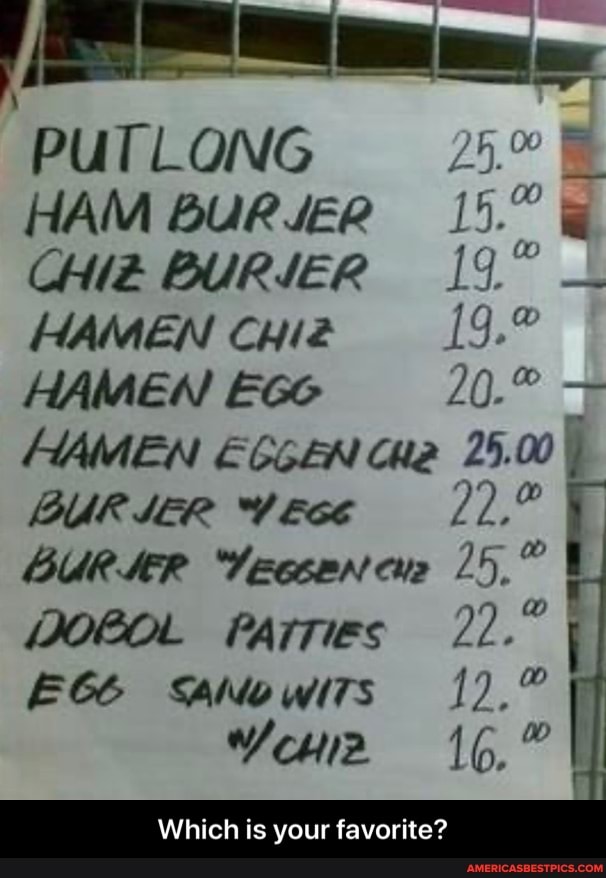 PUTLONG 25.00
HAM BURJER 15.00
CHIZ BURJER 19.00
HAMEN CHIZ 19.00
HAMEN EGG 20.00
HAMEN EGGEN CHZ 25.00
BURJER W/ EGG 22.00
BURJER W/ EGGEN CHZ 25.00
DOBOL PATTIES 22.00
EGG SANDWITS 12.00
W/ CHIZ 16.00
Which is your favorite?
AMERICASBESTPICS.COM